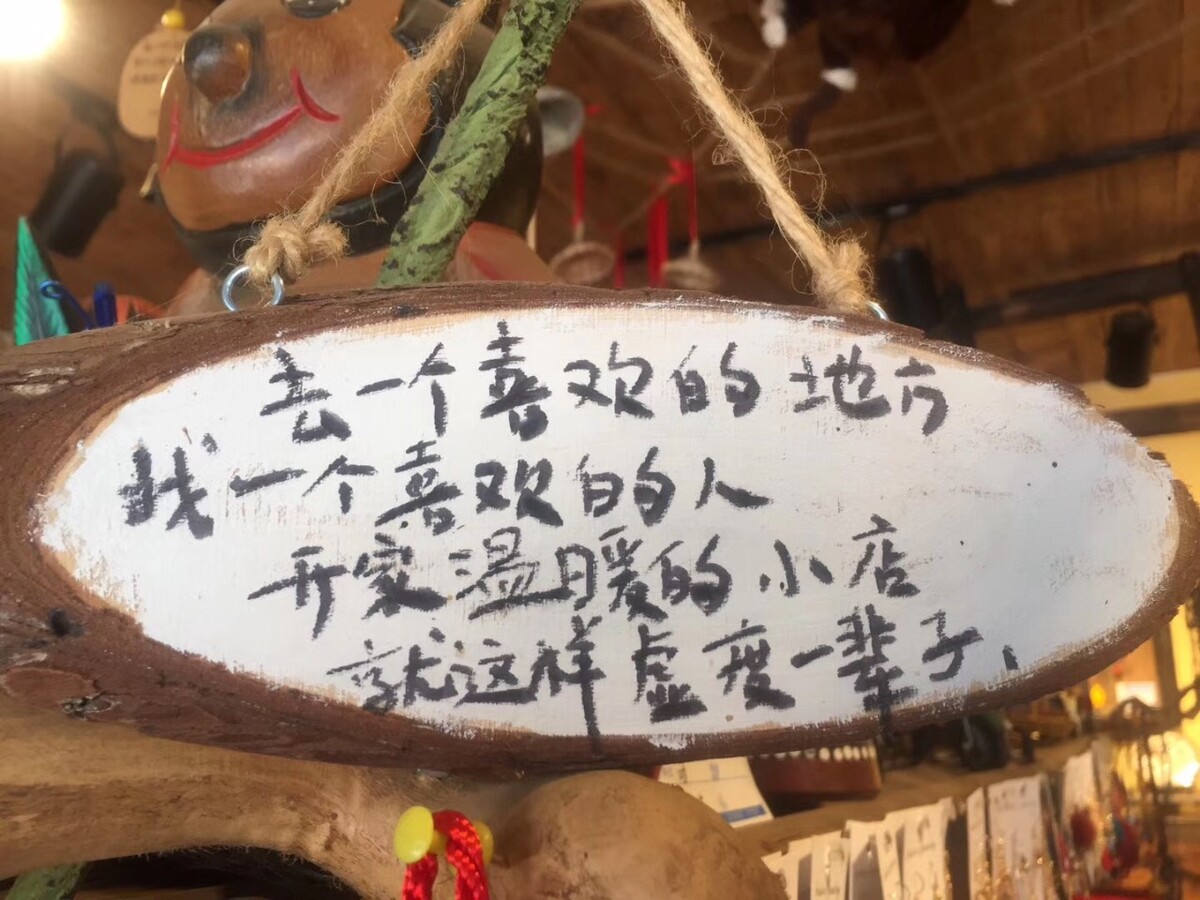 去一个喜欢的地方
找一个喜欢的人
开家温暖的小店
就这样虚度一辈子.